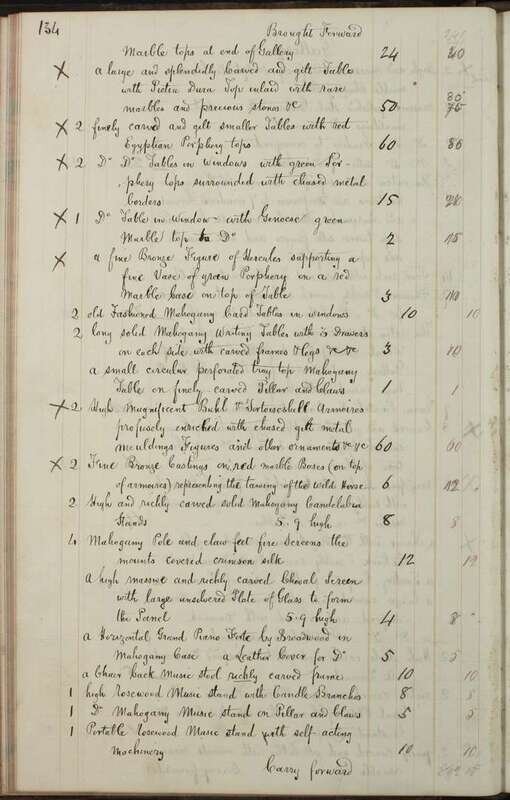 134
Brought Forward
Marble tops at end of Gallery 24 20
X a large and splendidly Carved and gilt Table
with Pietra Dura Top inlaid with rare 80
marbles and precious stones &c 50 75
X 2 finely carved and gilt smaller Tables with red
Egyptian Porphery tops 60 80
X 2 Do Do Tables in Windows with green Por-
phery tops surrounded with chased metal
borders 15
X 1 Do Table in Window with Genoese green
Marble top Do 2 15
X a fine Bronze Figure of Hercules supporting a
fine Vase of green Porphery on a red
Marble base on top of Table 3
2 old Fashioned Mahogany Card Tables in windows 10 10
2 long solid Mahogany Writing Tables with 3 Drawers
on each side with carved frames & legs &c &c 3 10
a small circular perforated tray top Mahogany
Table on finely carved Pillar and Claws 1 1
X 2 High Magnificent Buhl & Tortoiseshell Armoires
profusely enriched with chased gilt metal
mouldings Figures and other ornaments &c &c 60 60
X 2 Fine Bronze Castings on red marble Bases (on top
of armoires) representing the taming of the Wild Horse 6 12
2 High and richly carved solid Mahogany Candelabra
Stands 5.9 high 8 8
4 Mahogany Pole and claw feet fire Screens the
mounts covered crimson silk 12 12
A high massive and richly carved Cheval Screen
with large unsilvered Plate of Glass to form
the Panel 5.9 high 4 8
a Horizontal Grand Piano Forte by Broadwood in
Mahogany Case a Leather Cover for Do 5 5
a Chair back Music stool richly carved frame 10 10
1 high Rosewood Music stand with Candle Branches 8 8
1 Do Mahogany Music stand on Pillar and Claws 5 5
1 Portable Rosewood Music stand with self acting
Machinery 10 10
Carry forward